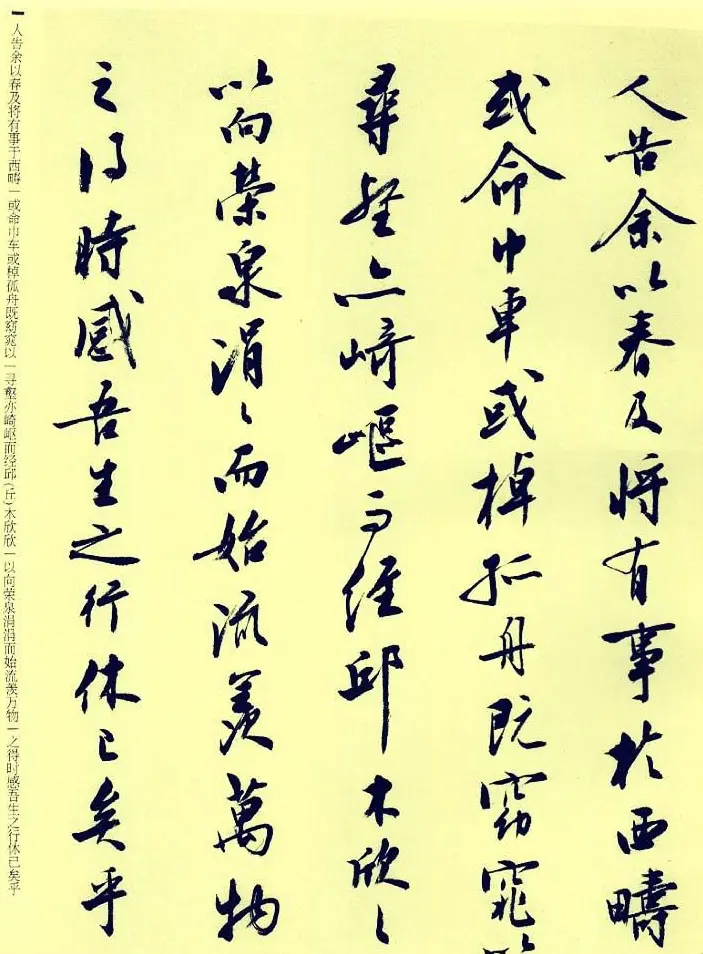 人告余以春及将有事於西疇
或命巾車或棹孤舟既窈窕以
尋壑亦崎嶇而經邱木欣〻
以向榮泉涓〻而始流羨萬物
之得時感吾生之行休已矣乎
人告余以春及将有事于西畴一或命巾车或棹孤舟既窈窕以一寻壑亦崎岖而经邱(丘)木欣欣一以向荣泉涓涓而始流羡万物一之得时感吾生之行休已矣乎